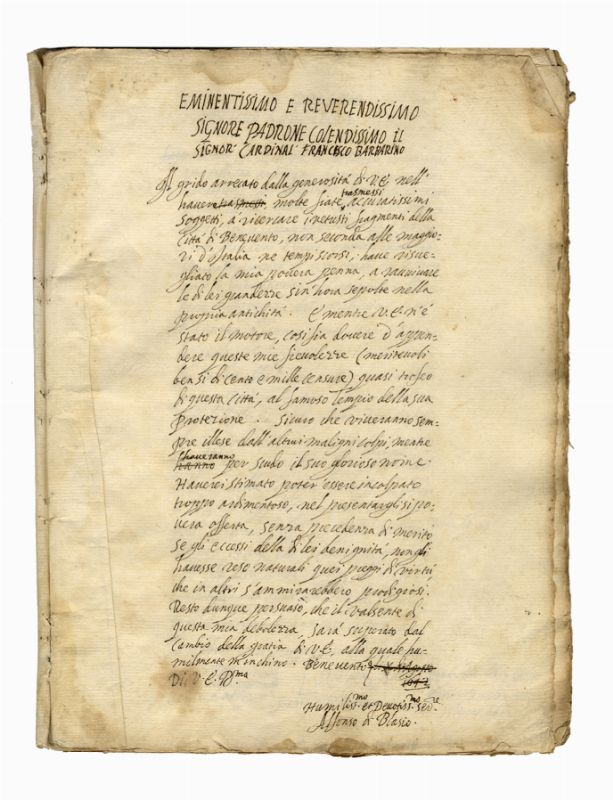 EMINENTISSIMO E REVERENDISSIMO
SIGNORE PADRONE COLENDISSIMO IL
SIGNOR CARDINAL FRANCESCO BARBARINO
Il grido arrecato dalla generosità di V.E. nell'
havere trasmessi molte fiate accuratissimi
soggetti, a ricercare i vetusti fragmenti della
Città di Benevento, non seconda alle maggio-
ri d'Italia ne tempi scorsi, have risve-
gliato la mia povera penna, a ravvivare
le di lei grandezze sin'hora sepolte nella
propria antichità. E mentre V.E. n'è
stato il motore, così fia dovere d'appen-
dere queste mie fievolezze (meritevoli
ben sì di cento e mille censure) quasi trofeo
di questa Città, al famoso Tempio della sua
Protezione. Sicuro che viveranno sem-
pre illese dall'altrui maligni colpi, mentre
haveranno
hanno per scudo il suo glorioso nome.
Haverei stimato poter essere incolpato
troppo ardimentoso, nel presentargli sì po-
vera offerta, senza precedenza di merito
se gli eccessi della di lei benignità, non gli
havesse reso naturali quei preggi di virtù
che in altri s'ammirarebbero prodigiosi.
Resto dunque persuaso, che il valsente di
questa mia debolezza sarà superato dal
Cambio della gratia di V.E. alla quale hu-
milmente m'inchino. Benevento
Di V.E. R.ma
Humiliss.mo et Devotiss.mo Ser.re
Alfonso di Blasio.